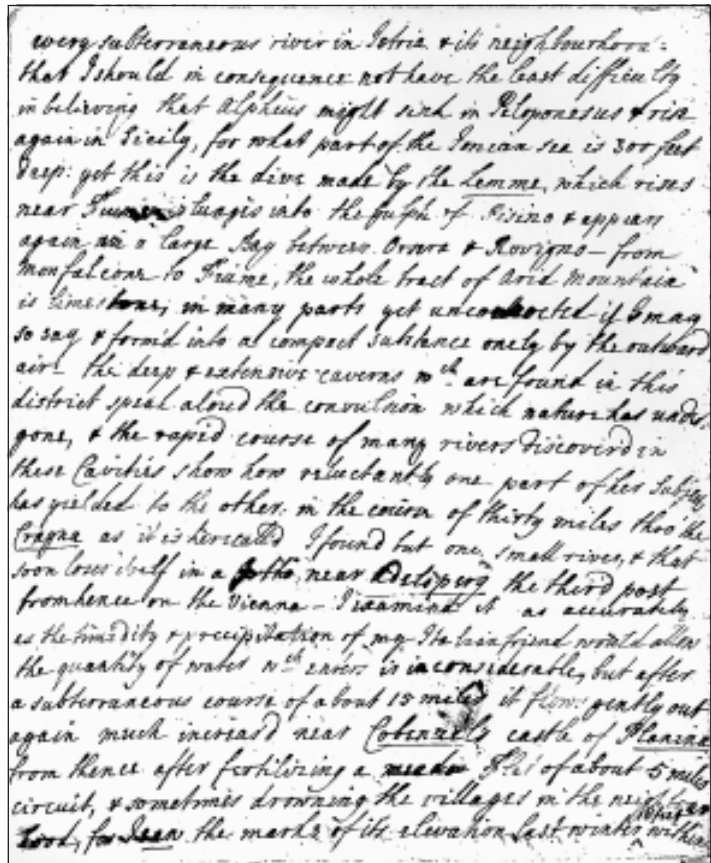 every subterraneous river in Istria & its neighbourhood =
that I should in consequence not have the least difficulty
in believing that Alphius might sink in Peloponesus & rise
again in Sicily, for what part of the Ionian sea is 300 feet
deep: yet this is the dive made by the Lemme, which rises
near plunges into the gulph of Pisino & appears
again in a large Bay between Orsera & Rovigno – from
Monfalcone to Fiume, the whole tract of Arid Mountain
is limestone, in many parts yet if I may
so say & form'd into a compact substance onely by the outward
air – the deep & extensive caverns wch are found in this
district speak aloud the convulsion which nature has under,
gone, & the rapid course of many rivers discover'd in
these Cavities show how reluctantly one part of her Subjects
has yielded to the other. in the course of thirty miles thro' the
Cragna as it is here called I found but one small river, & that
soon loses itself in a near the third post
from hence on the Vienna – I examined it as accurately
as the timidity & precipitation of my Italian friend would allow
the quantity of water wch enters is inconsiderable, but after
a subterraneous course of about 15 miles it flows gently out
again much increas'd near Cobenzel's castle of Planina
from thence after fertilizing a of about 5 miles
circuit, & sometimes drowning the villages in the neighbour
hood, for I seen the marks of its elevation last winter within